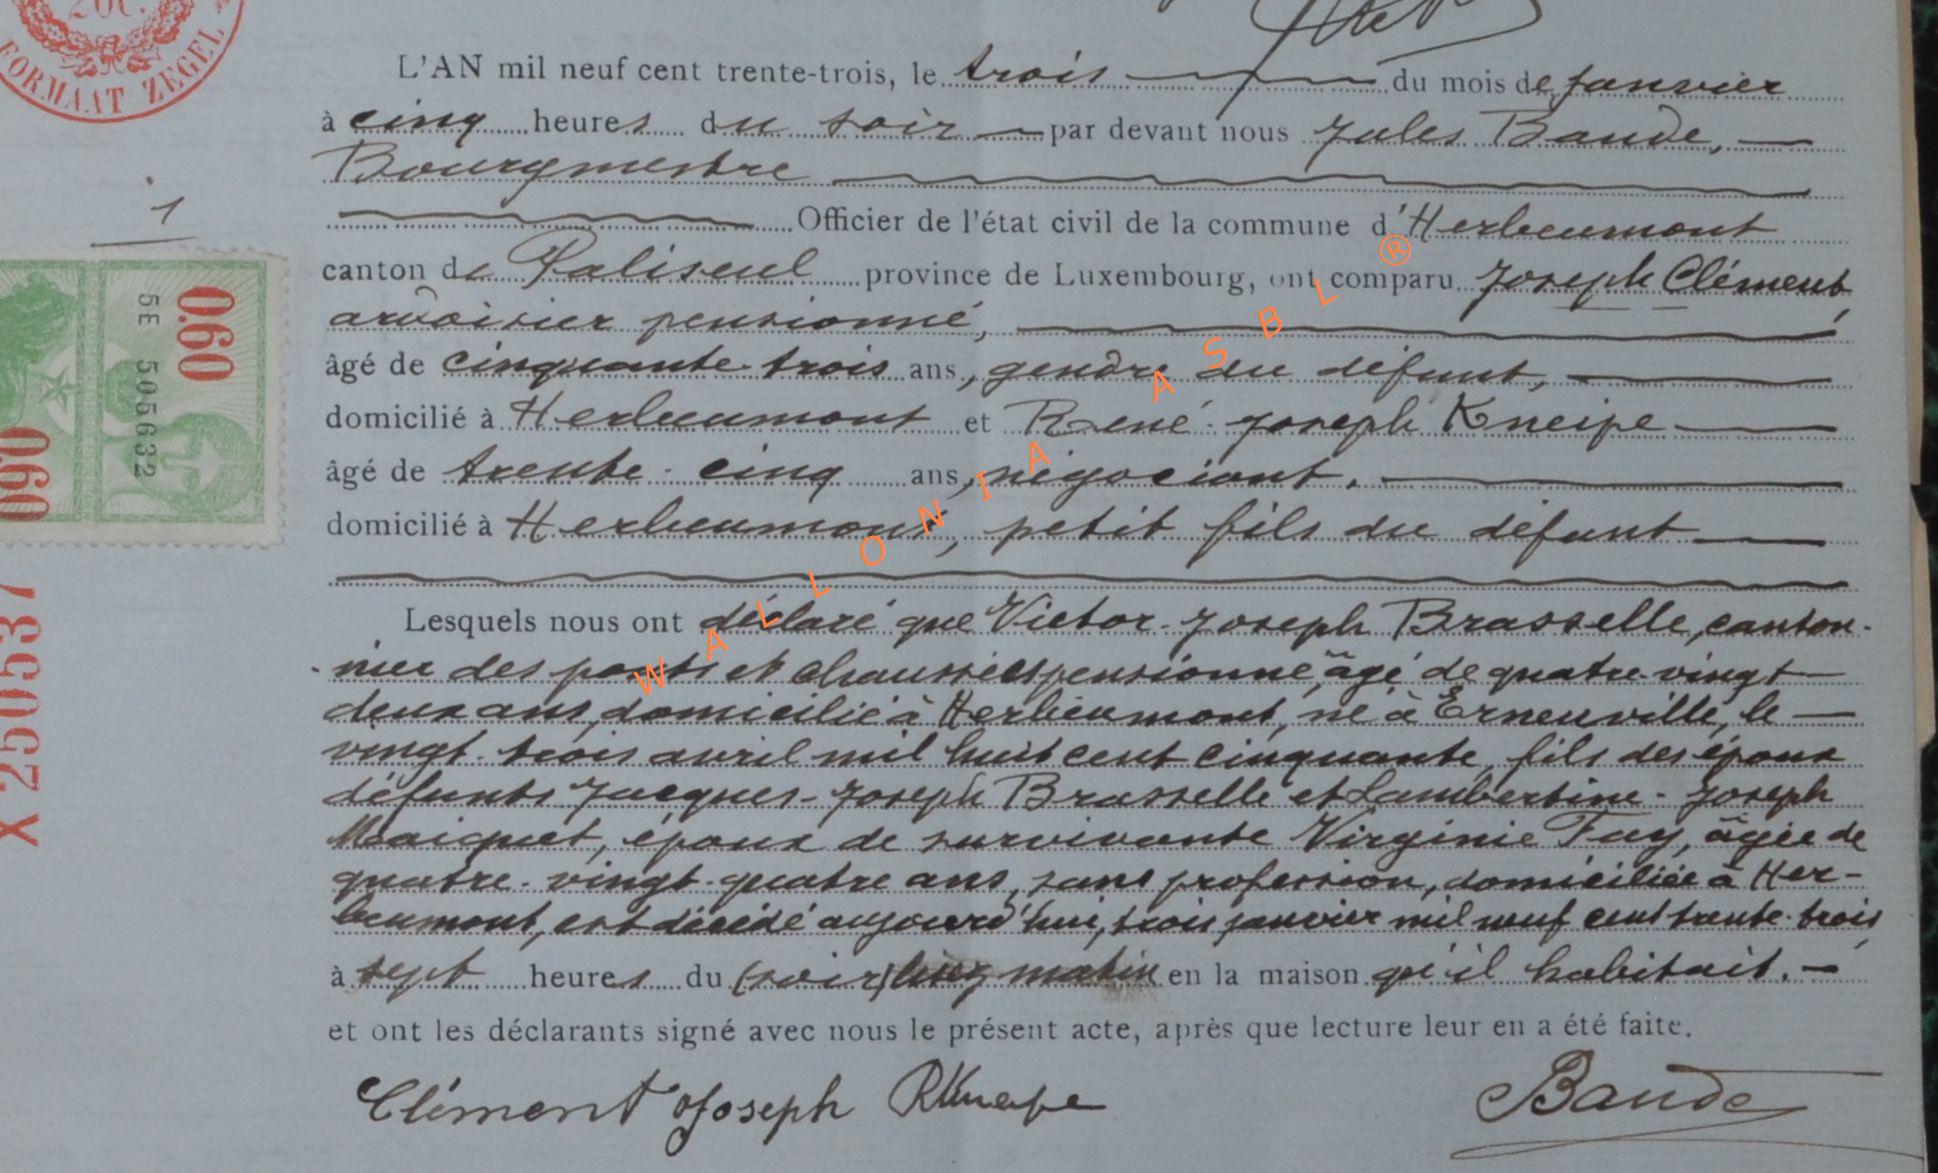 20c.
FORMAAT ZEGEL
L'AN mil neuf cent trente-trois, le trois du mois de janvier
à cinq heures du soir par devant nous Jules Baude,
Bourgmestre
1
Officier de l'état civil de la commune d'Herbeumont
canton de Paliseul province de Luxembourg, ont comparu Joseph Clément,
ardoisier pensionné,
âgé de cinquante-trois ans, gendre du défunt,
domicilié à Herbeumont et René-Joseph Kneipe
âgé de trente-cinq ans, négociant,
domicilié à Herbeumont, petit fils du défunt
Lesquels nous ont déclaré que Victor-Joseph Brasselle, canton-
nier des ponts et chaussées pensionné, âgé de quatre-vingt
deux ans, domicilié à Herbeumont, né à Erneuville, le
vingt-trois avril mil huit cent cinquante, fils des époux
défunts Jacques-Joseph Brasselle et Lambertine-Joseph
Maiquet, époux de survivante Virginie Fuy, âgée de
quatre-vingt-quatre ans, sans profession, domiciliée à Her-
beumont, est décédé aujourd'hui, trois janvier mil neuf cent trente-trois,
à sept heures du (soir) matin en la maison qu'il habitait.
et ont les déclarants signé avec nous le présent acte, après que lecture leur en a été faite.
Clément Joseph RKneipe Baude
0.60
5E 505632
0.60
X 250537
WALLONIA ASBL ®